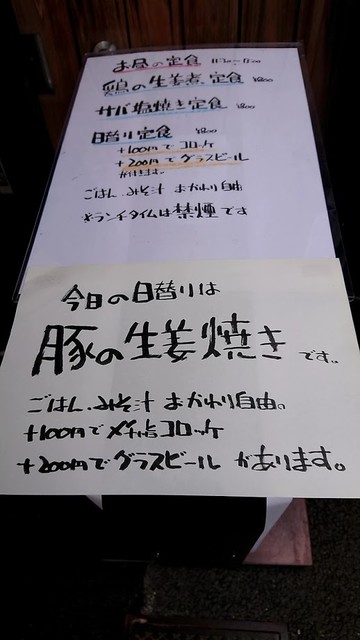 お昼の定食
の生姜煮定食 ¥800
サバ塩焼き定食 ¥800
日替り定食 ¥800
+100円でコロッケ
+200円でグラスビール
が付きます。
ごはん、みそ汁 おかわり自由
※ランチタイムは禁煙です
今日の日替りは
豚の生姜焼きです。
ごはん、みそ汁 おかわり自由。
+100円でコロッケ
+200円でグラスビールがあります。